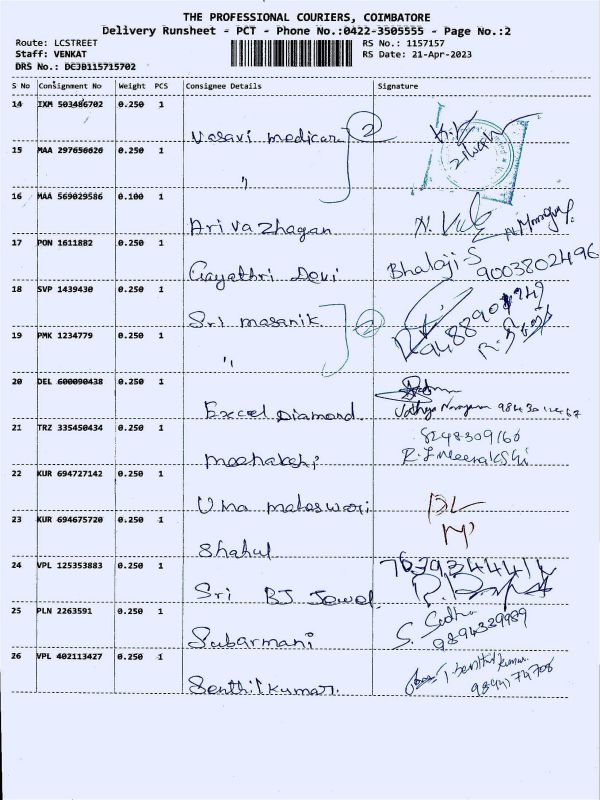 THE PROFESSIONAL COURIERS, COIMBATORE
Delivery Runsheet - PCT - Phone No.:0422-3505555 - Page No.:2
Route: LCSTREET RS No.: 1157157
Staff: VENKAT RS Date: 21-Apr-2023
DRS No.: DCJB115715702
S No Consignment No Weight PCS Consignee Details Signature
14 IXM 503486702 0.250 1 Vasavi medicare 2
15 MAA 297656620 0.250 1 "
16 MAA 569029586 0.100 1 Arivazhagan
17 PON 1611882 0.250 1 Gayathri Devi Bhalaji.S 9003802496
18 SVP 1439430 0.250 1 Sri masanik 2
19 PMK 1234779 0.250 1 "
20 DEL 600090438 0.250 1 Excel Diamond
21 TRZ 335450434 0.250 1 meenakshi 8248309160
R. Meenakshi
22 KUR 694727142 0.250 1 Uma maheswari
23 KUR 694675720 0.250 1 Shahul
24 VPL 125353883 0.250 1 Sri BJ Jewel
25 PLN 2263591 0.250 1 Subarmani S. Sudha
9894329989
26 VPL 402113427 0.250 1 Senthilkumar.